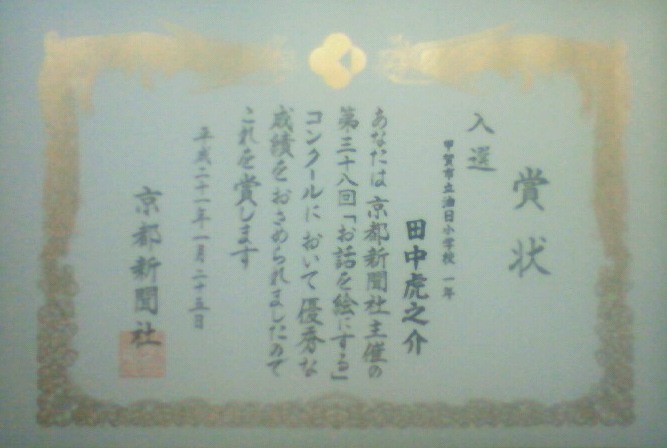 賞状
入選
甲賀市立油日小学校 一年
田中虎之介
あなたは京都新聞社主催の
第三十八回「お話を絵にする」
コンクールにおいて優秀な
成績をおさめられましたので
これを賞します
平成二十一年一月二十五日
京都新聞社